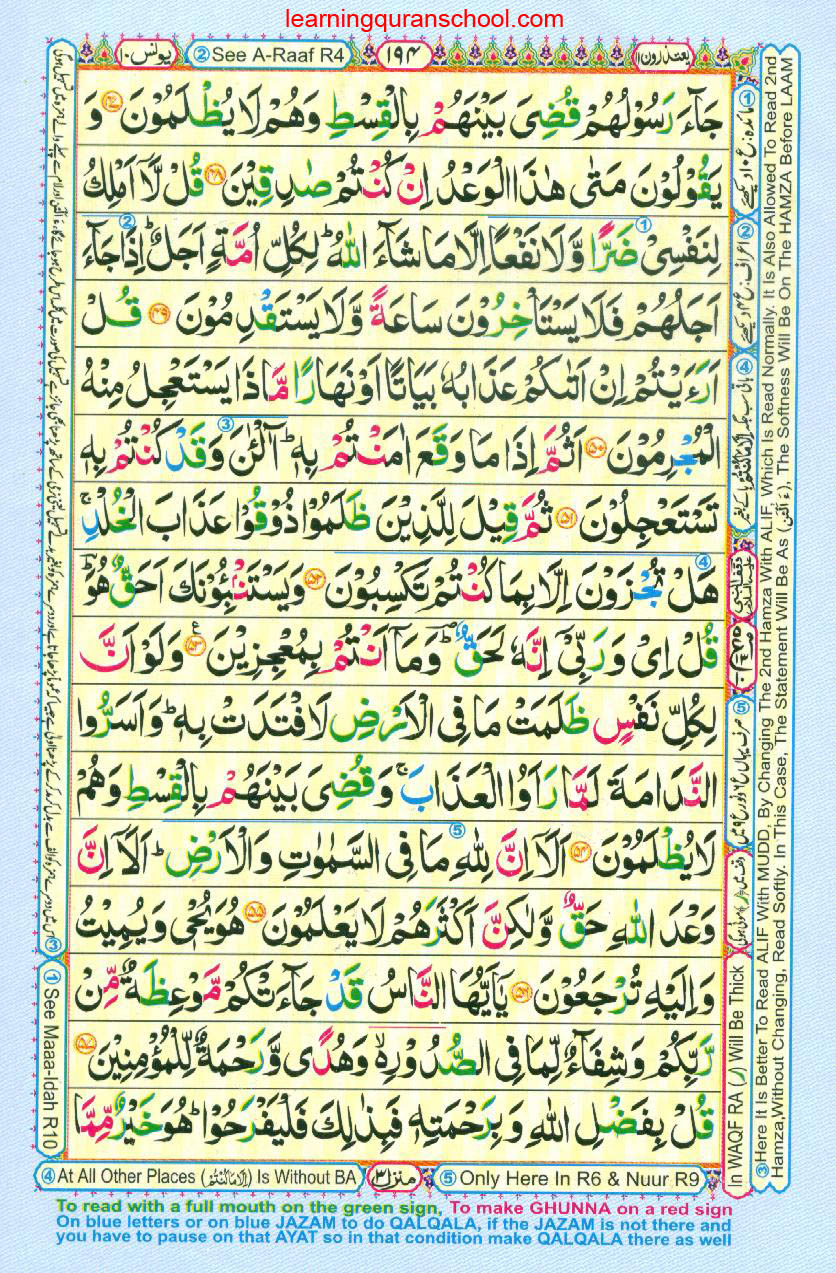 learningquranschool.com
يعتذرون ١١
١٩٤
② See A-Raaf R4
يونس ١٠
جَآءَ رَسُوْلُهُمْ قُضِىَ بَيْنَهُمْ بِالْقِسْطِ وَهُمْ لَا يُظْلَمُوْنَ ﴿۴۷﴾ وَ
يَقُوْلُوْنَ مَتٰى هٰذَا الْوَعْدُ اِنْ كُنْتُمْ صٰدِقِيْنَ ﴿۴۸﴾ قُلْ لَّاۤ اَمْلِكُ
لِنَفْسِىْ ضَرًّا وَّلَا نَفْعًا اِلَّا مَا شَآءَ اللّٰهُ ؕ لِكُلِّ اُمَّةٍ اَجَلٌ ؕ اِذَا جَآءَ
اَجَلُهُمْ فَلَا يَسْتَاْخِرُوْنَ سَاعَةً وَّلَا يَسْتَقْدِمُوْنَ ﴿۴۹﴾ قُلْ
اَرَءَيْتُمْ اِنْ اَتٰىكُمْ عَذَابُهٗ بَيَاتًا اَوْ نَهَارًا مَّاذَا يَسْتَعْجِلُ مِنْهُ
الْمُجْرِمُوْنَ ﴿۵۰﴾ اَثُمَّ اِذَا مَا وَقَعَ اٰمَنْتُمْ بِهٖ ؕ آٰلْـٰٔنَ وَقَدْ كُنْتُمْ بِهٖ
تَسْتَعْجِلُوْنَ ﴿۵۱﴾ ثُمَّ قِيْلَ لِلَّذِيْنَ ظَلَمُوْا ذُوْقُوْا عَذَابَ الْخُلْدِ ۚ
هَلْ تُجْزَوْنَ اِلَّا بِمَا كُنْتُمْ تَكْسِبُوْنَ ﴿۵۲﴾ وَيَسْتَنْۢبِـُٔوْنَكَ اَحَقٌّ هُوَ ؕ
قُلْ اِىْ وَرَبِّىْۤ اِنَّهٗ لَحَقٌّ ؔؕ وَمَاۤ اَنْتُمْ بِمُعْجِزِيْنَ ﴿۵۳﴾ وَلَوْ اَنَّ
لِكُلِّ نَفْسٍ ظَلَمَتْ مَا فِى الْاَرْضِ لَافْتَدَتْ بِهٖ ؕ وَاَسَرُّوا
النَّدَامَةَ لَمَّا رَاَوُا الْعَذَابَ ۚ وَقُضِىَ بَيْنَهُمْ بِالْقِسْطِ وَهُمْ
لَا يُظْلَمُوْنَ ﴿۵۴﴾ اَلَاۤ اِنَّ لِلّٰهِ مَا فِى السَّمٰوٰتِ وَالْاَرْضِ ؕ اَلَاۤ اِنَّ
وَعْدَ اللّٰهِ حَقٌّ وَّلٰكِنَّ اَكْثَرَهُمْ لَا يَعْلَمُوْنَ ﴿۵۵﴾ هُوَ يُحْىٖ وَيُمِيْتُ
وَاِلَيْهِ تُرْجَعُوْنَ ﴿۵۶﴾ يٰۤاَيُّهَا النَّاسُ قَدْ جَآءَتْكُمْ مَّوْعِظَةٌ مِّنْ
رَّبِّكُمْ وَشِفَآءٌ لِّمَا فِى الصُّدُوْرِ ۙ وَهُدًى وَّرَحْمَةٌ لِّلْمُؤْمِنِيْنَ ﴿۵۷﴾
قُلْ بِفَضْلِ اللّٰهِ وَبِرَحْمَتِهٖ فَبِذٰلِكَ فَلْيَفْرَحُوْا ؕ هُوَ خَيْرٌ مِّمَّا
① See Maaa-idah R10
In WAQF RA (ر) Will Be Thick
③ Here It Is Better To Read ALIF With MUDD, By Changing The 2nd Hamza With ALIF, Which Is Read Normally. It Is Also Allowed To Read 2nd
Hamza,Without Changing, Read Softly. In This Case, The Statement Will Be As (ءَ اَلْئٰنَ), The Softness Will Be On The HAMZA Before LAAM
④ At All Other Places (اِلَّا مَا كُنْتُمْ) Is Without BA
منزل ٣
⑤ Only Here In R6 & Nuur R9
To read with a full mouth on the green sign, To make GHUNNA on a red sign
On blue letters or on blue JAZAM to do QALQALA, if the JAZAM is not there and
you have to pause on that AYAT so in that condition make QALQALA there as well